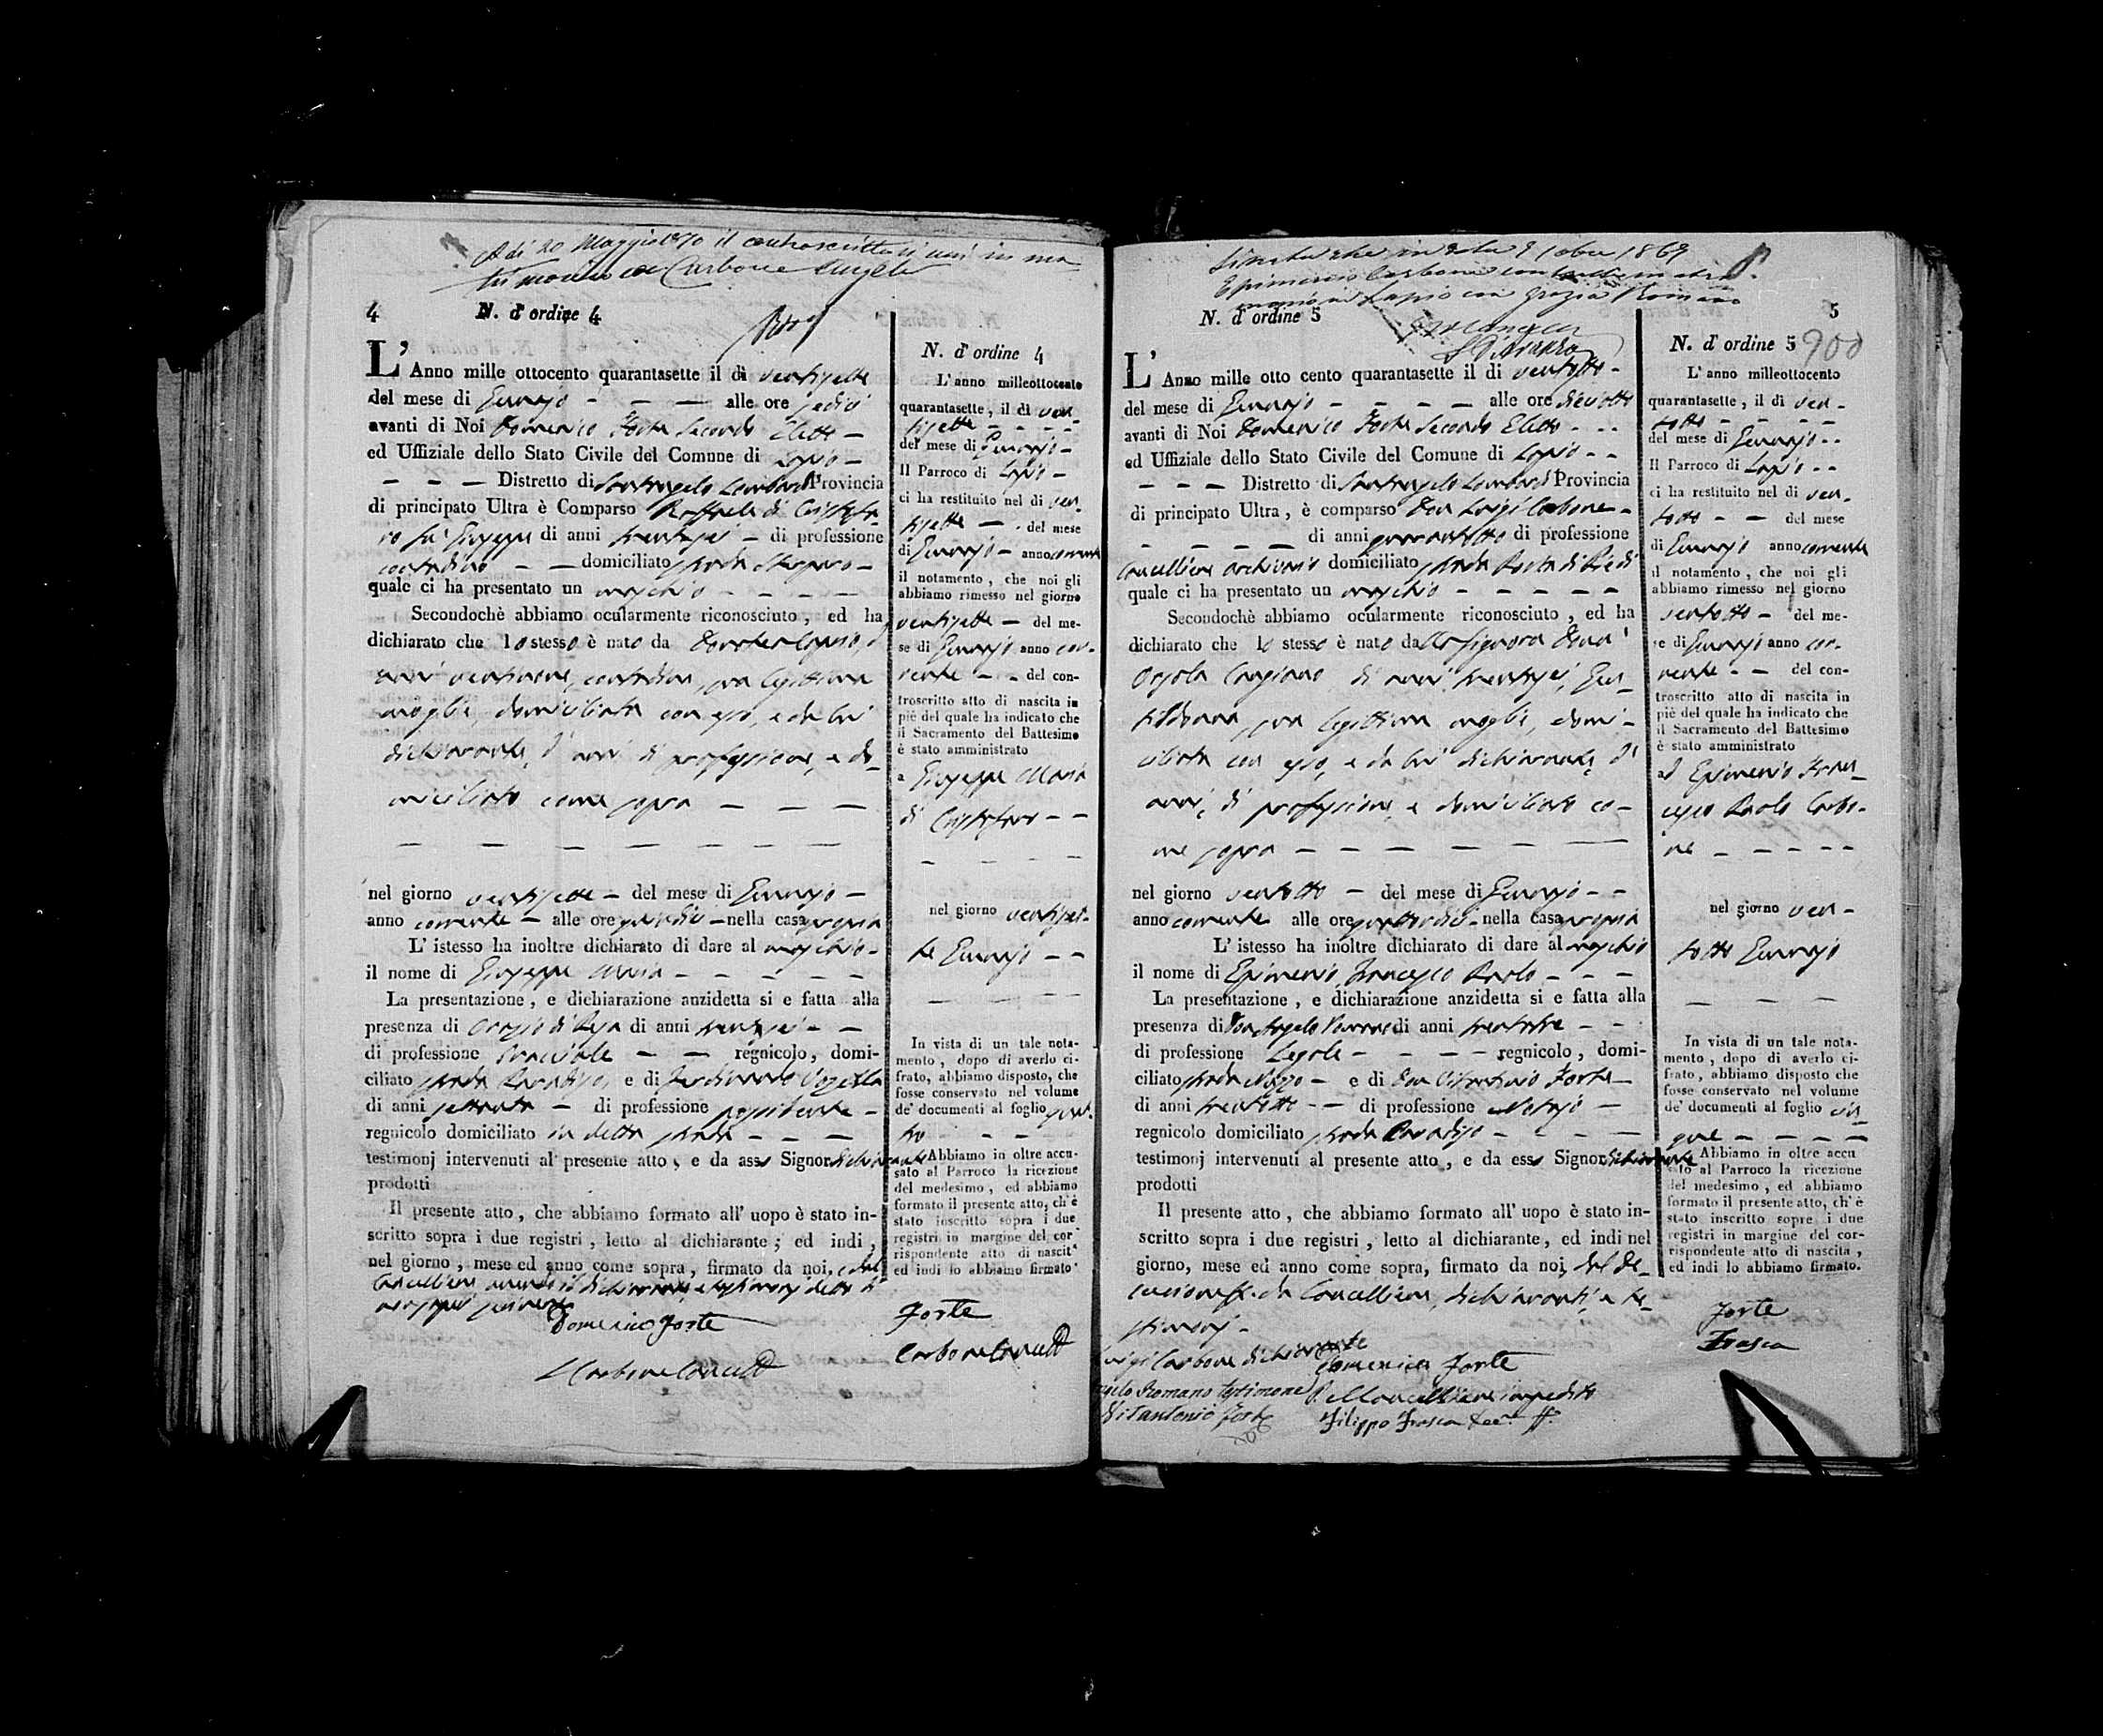 Adi 20 Maggio 1870 il controscritto si unì in ma
trimonio con Carbone Angela
4
N. d' ordine 4
L' Anno mille ottocento quarantasette il di ventisette
del mese di Gennajo - - — alle ore sedici
avanti di Noi Domenico Forte Secondo Eletto —
ed Uffiziale dello Stato Civile del Comune di Lapio —
— — — Distretto di Santangelo Lombardi Provincia
di principato Ultra è Comparso Raffaele di Cristofa-
ro fu Giuseppe di anni trentasei — di professione
contadino — — domiciliato strada
quale ci ha presentato un maschio - - - - -
Secondochè abbiamo ocularmente riconosciuto, ed ha
dichiarato che lo stesso è nato da
anni ventinove, contadina, sua legittima
moglie, domiciliata con esso, e da lui
dichiarante, d' anni di professione, e do-
miciliato come sopra — — —
— — — — — — —
nel giorno ventisette — del mese di Gennajo —
anno corrente — alle ore quindici — nella casa propria
L' istesso ha inoltre dichiarato di dare al maschio -
il nome di Giuseppe Maria - - - - - -
La presentazione, e dichiarazione anzidetta si e fatta alla
presenza di Orazio di di anni trentasei - —
di professione — — regnicolo, domi-
ciliato strada Paradiso, e di Ferdinando
di anni settanta — di professione possidente —
regnicolo domiciliato in detta strada - — — —
testimonj intervenuti al presente atto, e da ass Signor dichiarante
prodotti
Il presente atto, che abbiamo formato all' uopo è stato in-
scritto sopra i due registri, letto al dichiarante; ed indi,
nel giorno, mese ed anno come sopra, firmato da noi, e dal
Cancelliere avendo il dichiarante, e testimonj detto di
non saper scrivere
Domenico Forte
Carbone Canc.
N. d' ordine 4
L' anno milleottocento
quarantasette, il di ven
tisette - - - -
del mese di Gennajo -
Il Parroco di Lapio -
ci ha restituito nel di ven-
tisette — . del mese
di Gennajo - anno corrente
il notamento, che noi gli
abbiamo rimesso nel giorno
ventisette — del me-
se di Gennajo anno cor-
rente - - del con-
troscritto atto di nascita in
piè del quale ha indicato che
il Sacramento del Battesimo
è stato amministrato
a Giuseppe Maria
di Cristofaro - -
- - - -
nel giorno ventiset-
te Gennajo - -
— — —
In vista di un tale nota-
mento, dopo di averlo ci-
frato, abbiamo disposto, che
fosse conservato nel volume
de' documenti al foglio quat-
tro - - -
Abbiamo in oltre accu-
sato al Parroco la ricezione
del medesimo, ed abbiamo
formato il presente atto, ch' è
stato inscritto sopra i due
registri in margine del cor
rispondente atto di nascit
ed indi lo abbiamo firmato
Forte
Carbone Canc.
1869
Epimenio Carbone
in Lapio con Grazia Romano
N. d' ordine 5
5
L' Anno mille otto cento quarantasette il di ventotto -
del mese di Gennajo - - - — alle ore dieciotto
avanti di Noi Domenico Forte Secondo Eletto - - -
ed Uffiziale dello Stato Civile del Comune di Lapio - -
— — — Distretto di Santangelo Lombardi Provincia
di principato Ultra, è comparso Don Luigi Carbone -
— — — — di anni quarantotto di professione
Cancelliere archivario domiciliato strada Porta di Piedi
quale ci ha presentato un maschio - - - - - -
Secondochè abbiamo ocularmente riconosciuto, ed ha
dichiarato che lo stesso è nato dalla Signora Donna
Orsola di anni trentasei, Gen-
tildonna, sua legittima moglie, domi-
ciliata con esso, e da lui dichiarante, d'
anni, di professione, e domiciliato co-
me sopra — — — — — —
nel giorno ventotto — del mese di Gennajo - -
anno corrente alle ore quattordici - nella casa propria
L' istesso ha inoltre dichiarato di dare al maschio
il nome di Epimenio, Francesco Paolo - - -
La presentazione, e dichiarazione anzidetta si e fatta alla
presenza di Don Angelo Romano di anni trentatre - -
di professione Legale - - - — regnicolo, domi-
ciliato strada — e di Don Vitantonio Forte —
di anni trentotto - — di professione Notajo —
regnicolo domiciliato strada Paradiso - - — —
testimonj intervenuti al presente atto, e da ess Signor dichiarante
prodotti
Il presente atto, che abbiamo formato all' uopo è stato in-
scritto sopra i due registri, letto al dichiarante, ed indi nel
giorno, mese ed anno come sopra, firmato da noi, dal De-
curione ff. da Cancelliere, dichiarante, e te-
stimonj -
Luigi Carbone dichiarante
Domenico Forte
Angelo Romano testimone
Pel Cancelliere impedito
Vitantonio Forte
Filippo Frasca Dec.ne ff.
N. d' ordine 5
900
L' anno milleottocento
quarantasette, il di ven-
totto - - - -
del mese di Gennajo - -
Il Parroco di Lapio - -
ci ha restituito nel di ven-
totto - - del mese
di Gennajo anno corrente
il notamento, che noi gli
abbiamo rimesso nel giorno
ventotto — del me-
se di Gennajo anno cor-
rente - - del con-
troscritto atto di nascita in
piè del quale ha indicato che
il Sacramento del Battesimo
è stato amministrato
ad Epimenio Fran-
cesco Paolo Carbo-
ne - - - - -
nel giorno ven-
totto Gennajo
— — —
In vista di un tale nota-
mento, dopo di averlo ci-
frato, abbiamo disposto che
fosse conservato nel volume
de' documenti al foglio cin
que — — — —
Abbiamo in oltre accu
sato al Parroco la ricezione
del medesimo, ed abbiamo
formato il presente atto, ch' è
stato inscritto sopre i due
registri in margine del cor-
rispondente atto di nascita,
ed indi lo abbiamo firmato.
Forte
Frasca